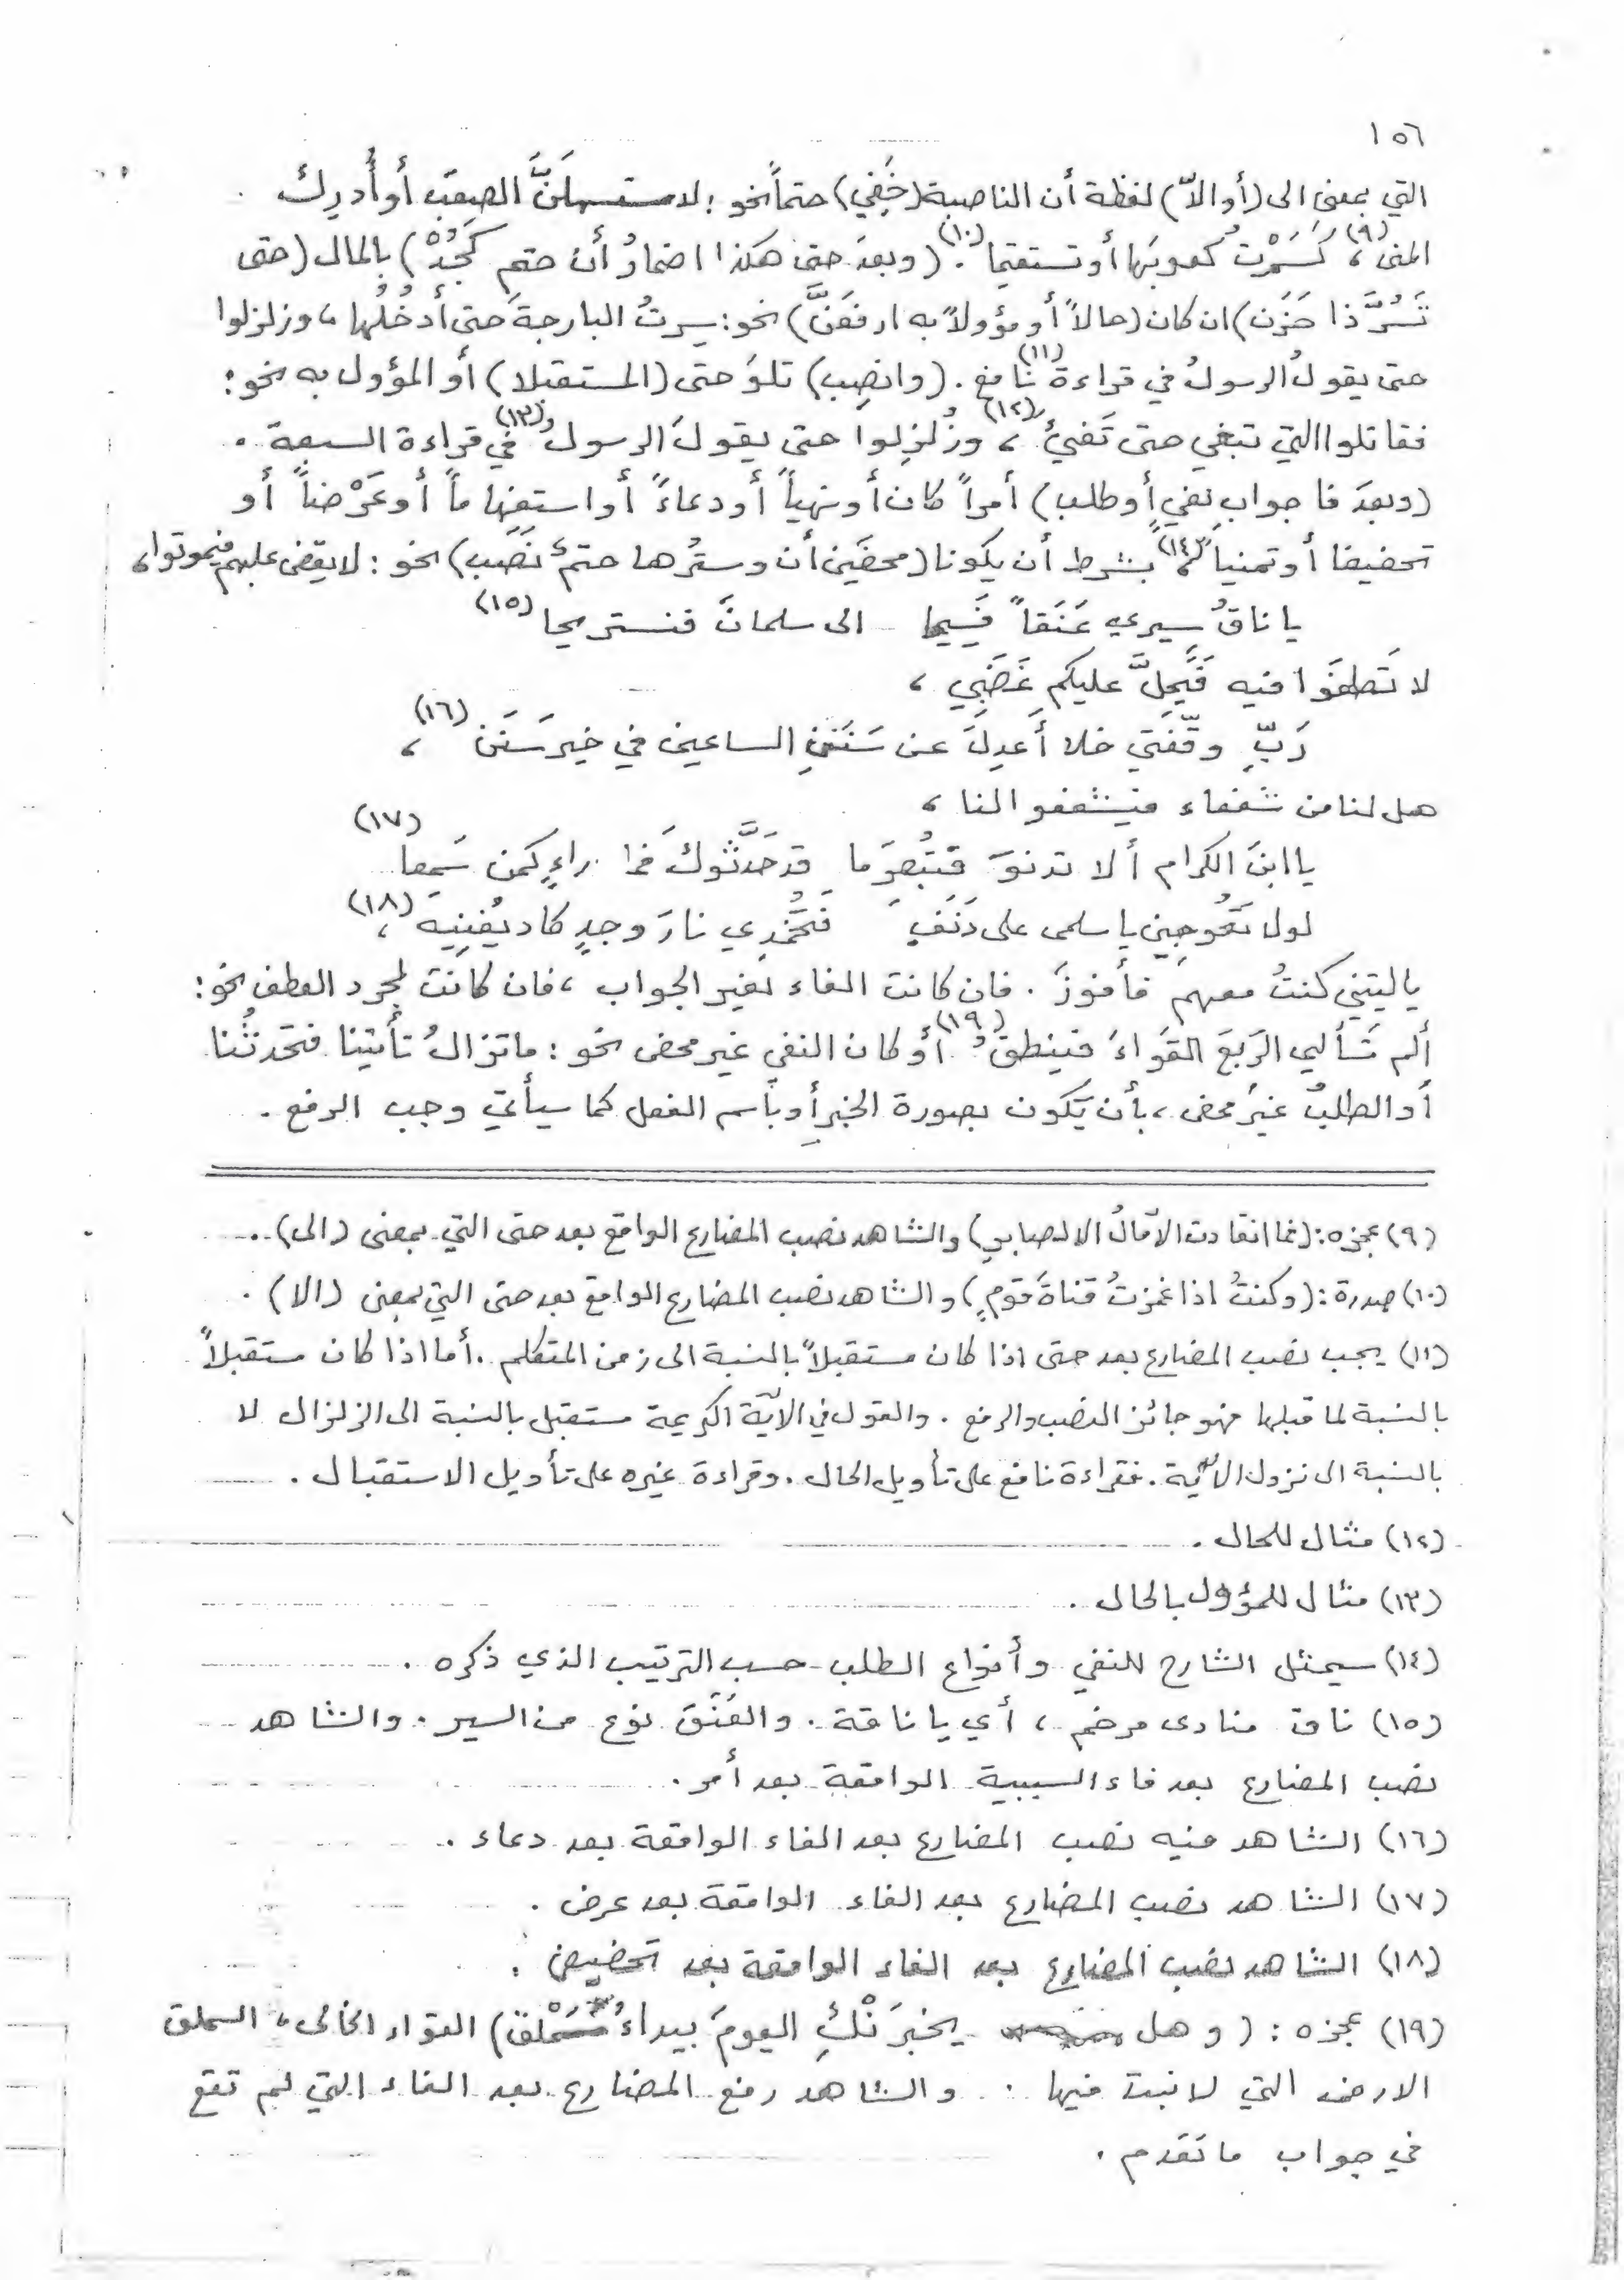 ١٥٦
التي بمعنى الى (أو الاّ) لفظة أن الناصبة (خَفِي) حتماً نحو : لاستسهلَنَّ الصعبَ أو أُدرِكَ
المنى (٩) ، كَسَرْتُ كُعوبَها أو تستقيما (١٠) . (وبعدَ حتى هكذا اضمارُ أن حتم كَجُدْ) بالمال (حتى
تَسُرَّ ذا حَزَن) ان كان (حالاً أو مؤولاً به ارفعَنَّ) نحو : سرتُ البارحةَ حتى أدخُلُها ، وزلزلوا
حتى يقولُ الرسولُ في قراءة نافع (١١) . (وانصِب) تلوَ حتى (المستقبلا) أو المؤول به نحو :
فقاتلوا التي تبغي حتى تَفيئَ (١٢) ، وزُلزِلوا حتى يقولَ الرسولُ (١٣) في قراءة السبعة .
(وبعدَ فا جوابِ نفيٍ أو طلب) أمراً كان أو نهياً أو دعاءً أو استفهاماً أو عَرْضاً أو
تحضيضا أو تمنياً (١٤) ، بشرط أن يكونا (محضَين أن وسترُها حتمٌ نَصَب) نحو : لا يقضى عليهم فيموتوا ،
يا ناقُ سيري عَنَقاً فَسِيحا الى سلمانَ فنستريحا (١٥)
لا تَطغَوا فيه فَيَحِلَّ عليكم غَضَبِي ،
رَبِّ وفّقني فلا أَعدِلَ عن سَنَنِ الساعين في خيرِ سَنَن (١٦) ،
هل لنا من شفعاء فيشفعوا لنا ،
يا ابنَ الكرام ألا تدنوَ فتُبصِرَ ما قد حَدَّثُوكَ فما راءٍ كمن سَمِعا (١٧)
لولا تَعُوجِين يا سلمى على دَنَفٍ فَتُخْمِدِي نارَ وجدٍ كاد يُفنِيهِ (١٨) ،
يا ليتني كنتُ معهم فأفوزَ . فان كانت الفاء لغير الجواب ، فان كانت لمجرد العطف نحو :
ألم تَسألِي الرَبعَ القَواءَ فينطقُ (١٩) أو كان النفي غير محض نحو : ما تزالُ تأتينا فتحدثُنا
أو الطلبُ غيرُ محض ، بأن يَكون بصورة الخبر أو بأسم الفعل كما سيأتي وجب الرفع .
(٩) عجزه : (فما انقادت الآمالُ الا لصابر) والشاهد نصب المضارع الواقع بعد حتى التي بمعنى (الى) .
(١٠) صدرة : (وكنتُ اذا غمزتُ قناةَ قومٍ) والشاهد نصب المضارع الواقع بعد حتى التي بمعنى (الا) .
(١١) يجب نصب المضارع بعد حتى اذا كان مستقبلاً بالنسبة الى زمن المتكلم . أما اذا كان مستقبلاً
بالنسبة لما قبلها فهو جائز النصب والرفع . والقول في الآية الكريمة مستقبل بالنسبة الى الزلزال لا
بالنسبة الى نزول الآية . فقراءة نافع على تأويل الحال . وقراءة غيره على تأويل الاستقبال .
(١٢) مثال للحال .
(١٣) مثال للمؤول بالحال .
(١٤) سيمثل الشارح للنفي وأنواع الطلب حسب الترتيب الذي ذكره .
(١٥) ناق منادى مرخم ، أي يا ناقة . والعَنَقَ نوع من السير . والشاهد
نصب المضارع بعد فاء السببية الواقعة بعد أمر .
(١٦) الشاهد فيه نصب المضارع بعد الفاء الواقعة بعد دعاء .
(١٧) الشاهد نصب المضارع بعد الفاء الواقعة بعد عرض .
(١٨) الشاهد نصب المضارع بعد الفاء الواقعة بعد تحضيض .
(١٩) عجزه : (وهل يخبرَنْكِ اليومَ بيداءُ سَمْلَق) القواء الخالى ، السملق
الارض التي لا نبت فيها . والشاهد رفع المضارع بعد الفاء التي لم تقع
في جواب ما تقدم .